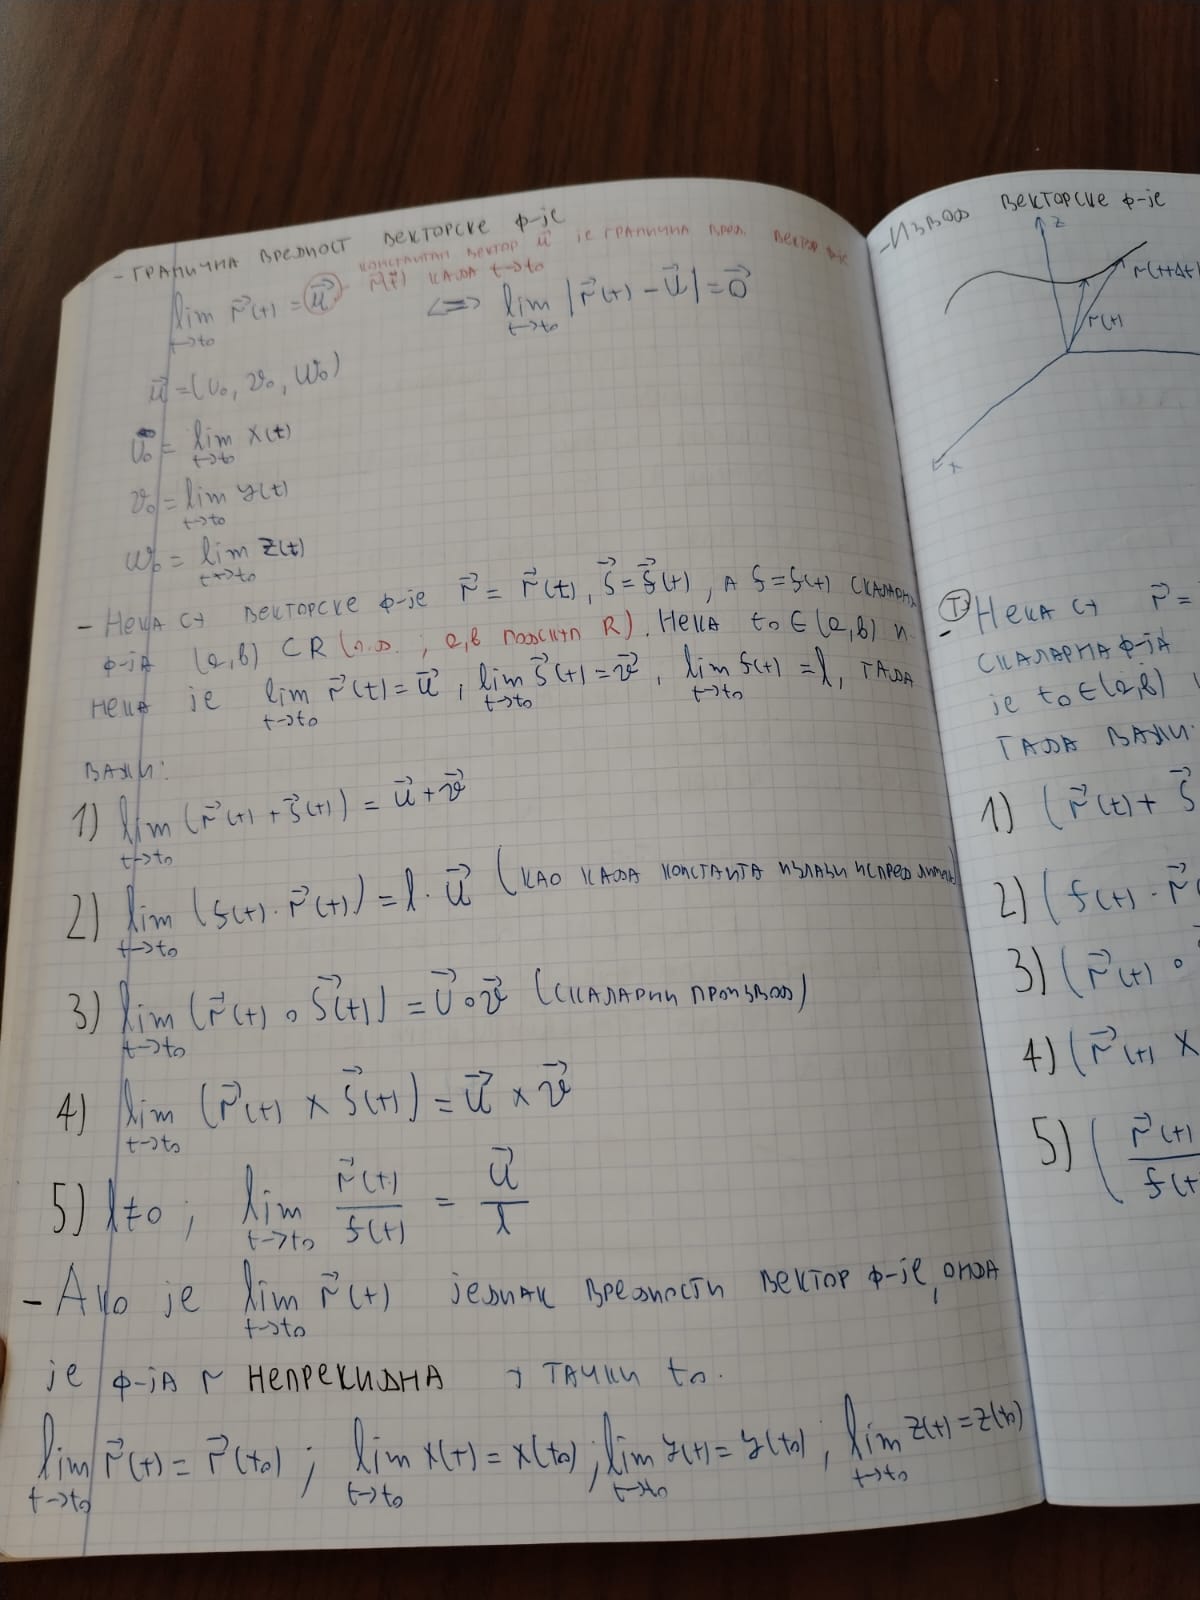 - ГРАНИЧНА ВРЕДНОСТ ВЕКТОРСКЕ Ф-ЈЕ
КОНСТАНТАН ВЕКТОР u⃗ ЈЕ ГРАНИЧНА ВРЕД. ВЕКТОР Ф-ЈЕ
r⃗(t) КАДА t→t₀
lim r⃗(t) = u⃗ <=> lim |r⃗(t) - u⃗| = 0⃗
t→t₀ t→t₀
u⃗ = (u₀, v₀, w₀)
u₀ = lim x(t)
t→t₀
v₀ = lim y(t)
t→t₀
w₀ = lim z(t)
t→t₀
- НЕКА СУ ВЕКТОРСКЕ Ф-ЈЕ r⃗ = r⃗(t), s⃗ = s⃗(t), А f = f(t) СКАЛАРНА
Ф-ЈА (a,b) ⊂ R (; a,b ПОДСКУП R). НЕКА t₀ ∈ (a,b) И
НЕКА ЈЕ lim r⃗(t) = u⃗, lim s⃗(t) = v⃗, lim f(t) = l, ТАДА
t→t₀ t→t₀ t→t₀
ВАЖИ:
1) lim (r⃗(t) + s⃗(t)) = u⃗ + v⃗
t→t₀
2) lim (f(t) · r⃗(t)) = l · u⃗ (КАО КАДА КОНСТАНТА ИЗЛАЗИ ИСПРЕД
t→t₀
3) lim (r⃗(t) ∘ s⃗(t)) = u⃗ ∘ v⃗ (СКАЛАРНИ ПРОИЗВОД)
t→t₀
4) lim (r⃗(t) × s⃗(t)) = u⃗ × v⃗
t→t₀
5) l≠0 ; lim r⃗(t)/f(t) = u⃗/l
t→t₀
- АКО ЈЕ lim r⃗(t) ЈЕДНАК ВРЕДНОСТИ ВЕКТОР Ф-ЈЕ, ОНДА
t→t₀
ЈЕ Ф-ЈА r НЕПРЕКИДНА У ТАЧКИ t₀.
lim r⃗(t) = r⃗(t₀) ; lim x(t) = x(t₀) ; lim y(t) = y(t₀) , lim z(t) = z(t₀)
t→t₀ t→t₀ t→t₀ t→t₀
- ИЗВОД ВЕКТОРСКЕ Ф-ЈЕ
z
r(t+Δt)
r(t)
x
- Т: НЕКА СУ r⃗ =
СКАЛАРНА Ф-ЈА
ЈЕ t₀ ∈ (a,b)
ТАДА ВАЖИ:
1) (r⃗(t) + s⃗
2) (f(t) · r⃗
3) (r⃗(t) ∘
4) (r⃗(t) ×
5) (r⃗(t)/f(t